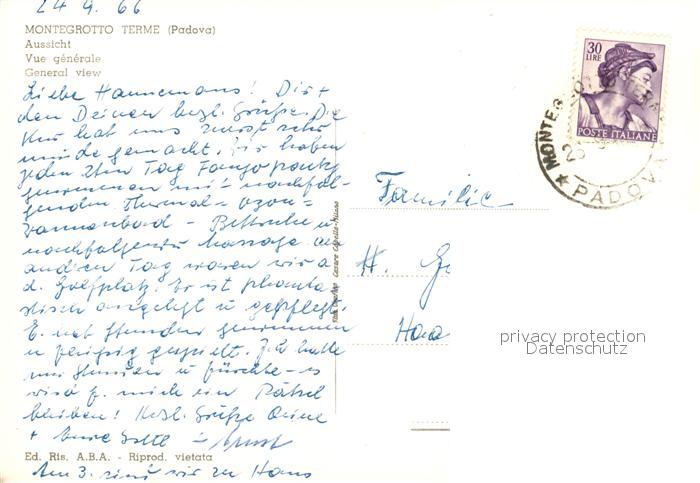 24 9. 66
MONTEGROTTO TERME (Padova)
Aussicht
Vue générale
General view
Liebe Hannemans! Dir +
den Deinen hrzl. Grüße. Die
Kur hat uns zuerst sehr
müde gemacht. Wir haben
jeden 2ten Tag Fango
genommen mit nachfol-
genden Thermal - Ozon -
Wannenbad - Bettruhe u
nachfolgender Massage an
andren Tag waren wir a
d. Golfplatz. Er ist phanta
stisch angelegt u gepflegt
E. hat Stunden genommen
u fleissig gespielt. Ich hatte
nur Stunden u fürchte - es
wird f. mich ein Rätsel
bleiben! Herzl. Grüße Deine
+
Ed. Ris. A.B.A. - Riprod. vietata
Am 3. sind wir zu Haus
30
LIRE
POSTE ITALIANE
MONTEG
PADOVA
Familie
H. G
Haa
privacy protection
Datenschutz